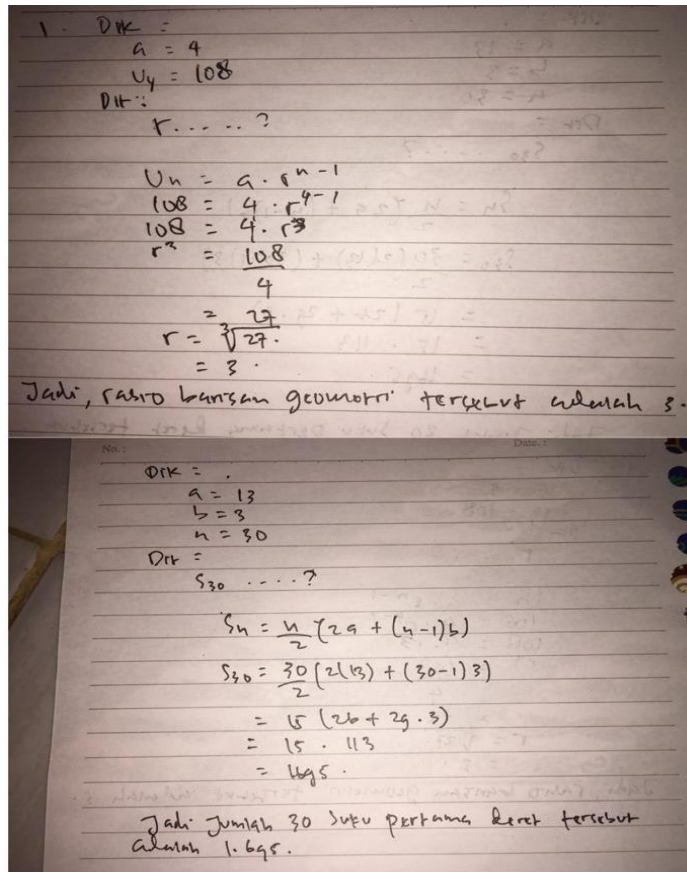 1. Dik =
a = 4
U4 = 108
Dit :
r.....?
Un = a . r^n-1
108 = 4 . r^4-1
108 = 4 . r^3
r^3 = 108/4
= 27
r = ∛27.
= 3.
Jadi, rasio barisan geometri tersebut adalah 3.
No.: Date.:
Dik = .
a = 13
b = 3
n = 30
Dit =
S30 ....?
Sn = n/2 (2a + (n-1)b)
S30 = 30/2 (2(13) + (30-1)3)
= 15 (26 + 29.3)
= 15 . 113
= 1695.
Jadi Jumlah 30 suku pertama deret tersebut
adalah 1.695.